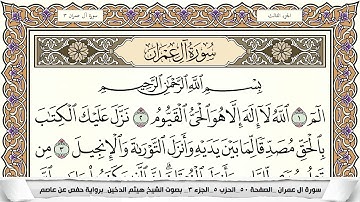 الجزء الثالث
سورة آل عمران ٣
سُورَةُ آلِ عِمْرَانَ
بِسْمِ اللَّهِ الرَّحْمَٰنِ الرَّحِيمِ
الٓمٓ ١ اللَّهُ لَآ إِلَٰهَ إِلَّا هُوَ الْحَيُّ الْقَيُّومُ ٢ نَزَّلَ عَلَيْكَ الْكِتَٰبَ
بِالْحَقِّ مُصَدِّقًا لِّمَا بَيْنَ يَدَيْهِ وَأَنزَلَ التَّوْرَىٰةَ وَالْإِنجِيلَ ٣ مِن
سورة آل عمران _الصفحة ٥٠_الحزب ٥_الجزء ٣_ بصوت الشيخ هيثم الدخين_ برواية حفص عن عاصم